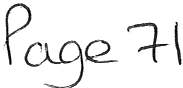 Page 71